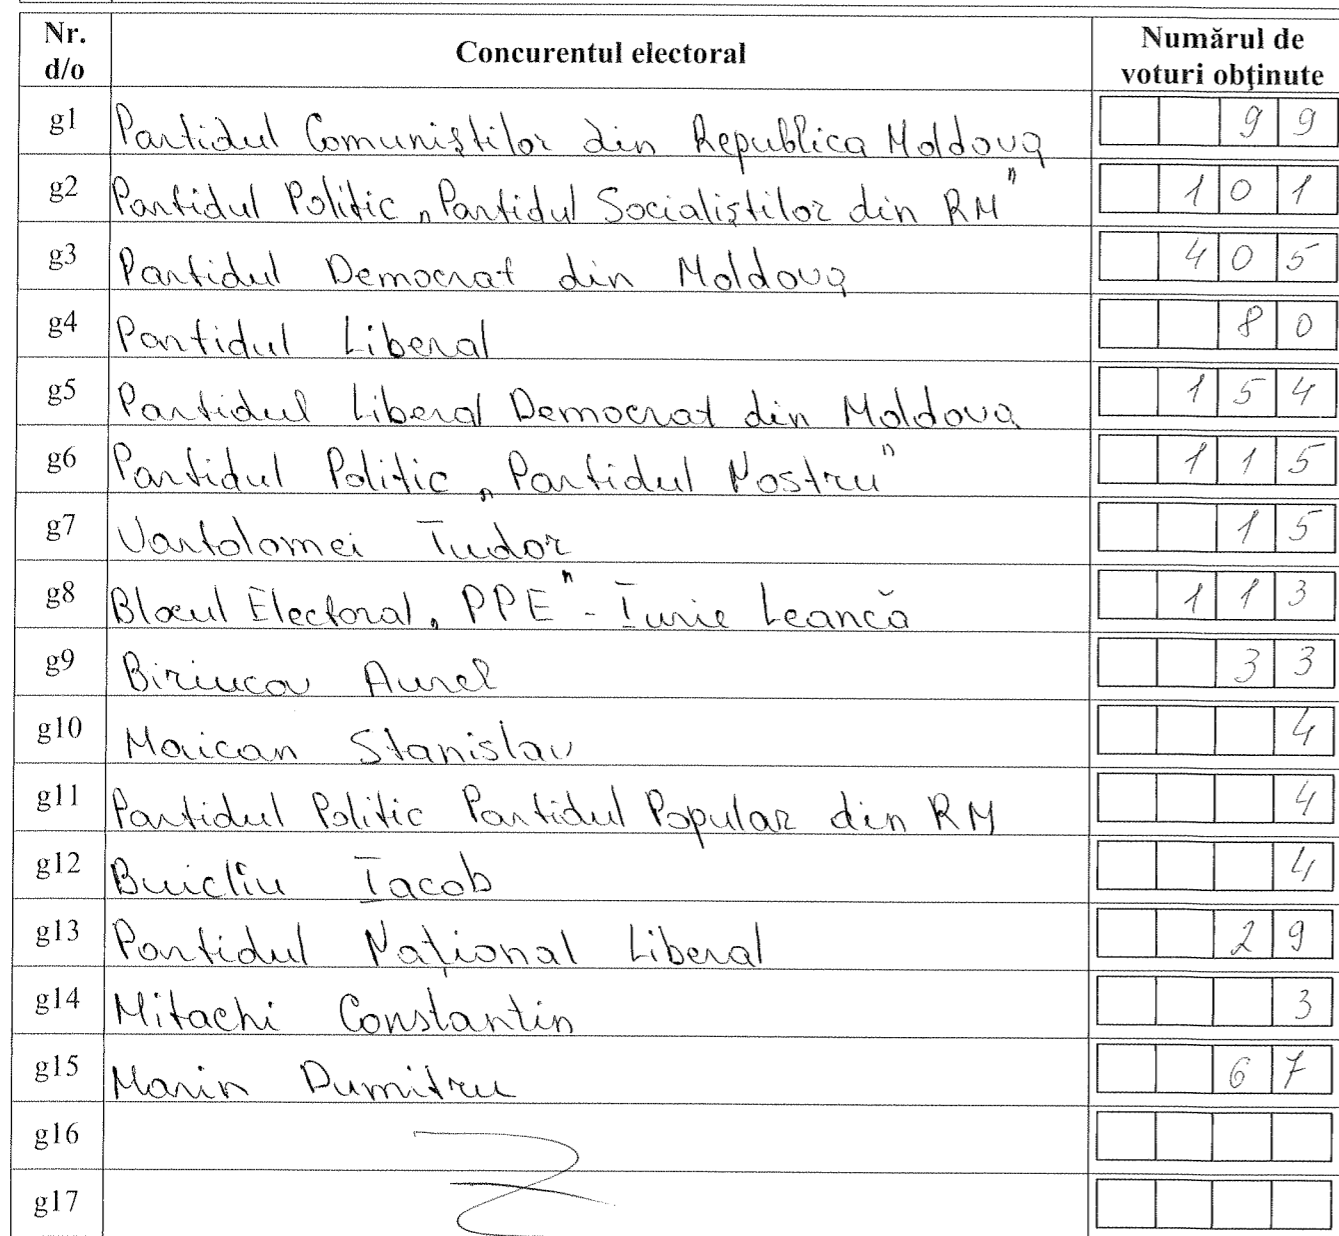 Nr. d/o Concurentul electoral Numărul de voturi obținute
g1 Partidul Comuniștilor din Republica Moldova 99
g2 Partidul Politic „Partidul Socialiștilor din RM" 101
g3 Partidul Democrat din Moldova 405
g4 Partidul Liberal 80
g5 Partidul Liberal Democrat din Moldova 154
g6 Partidul Politic „Partidul Nostru" 115
g7 Vartolomei Tudor 15
g8 Blocul Electoral „PPE" - Iurie Leancă 113
g9 Biriucov Aurel 33
g10 Maican Stanislav 4
g11 Partidul Politic Partidul Popular din RM 4
g12 Buicliu Iacob 4
g13 Partidul Național Liberal 29
g14 Mitachi Constantin 3
g15 Marin Dumitru 67
g16
g17